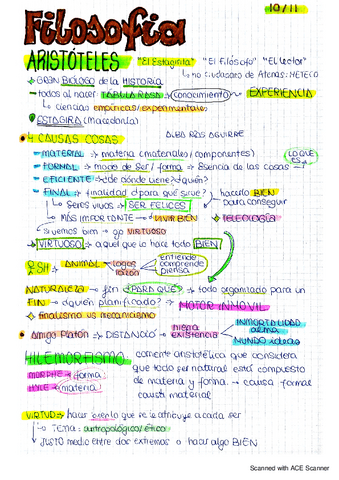 10/11
Filosofía
ARISTÓTELES "El Estagirita" "El Filósofo" "El Lector"
→ GRAN BIÓLOGO de la HISTORIA ↳ no ciudadano de Atenas: METECO
→ todos al nacer: TABULA RASA → conocimiento → EXPERIENCIA
↳ ciencias empíricas/experimentales
→ ESTAGIRA (Macedonia)
4 CAUSAS COSAS ALBA ROS AGUIRRE
— MATERIAL → materia (materiales/componentes) LO QUE ES
— FORMAL → modo de ser / forma → Esencia de las cosas
— EFICIENTE → ¿de dónde viene? ¿quién?
— FINAL → finalidad ¿para qué sirve? hacerlo BIEN para conseguir
↳ Seres vivos → SER FELICES
↳ MÁS IMPORTANTE → VIVIR BIEN TELEOLOGÍA
Si vemos bien → go VIRTUOSO
↳ VIRTUOSO → aquel que lo hace todo BIEN
R.S.H → ANIMAL logos razón entiende comprende piensa
NATURALEZA → fin ¿PARA QUÉ? → todo organizado para un
FIN → ¿quién planificado? → MOTOR INMÓVIL
finalismo vs mecanicismo
Amigo Platón → DISTANCIÓ → niega existencia INMORTALIDAD alma
MUNDO ideas
HILEMORFISMO corriente aristotélica que considera
que todo ser natural está compuesto
MORPHE → forma: de materia y forma. → causa formal
HYLE → materia: causa material
VIRTUD → hacer aquello que se le atribuye a cada ser
↳ TEMA: antropológico/ético
→ JUSTO medio entre dos extremos o hacer algo BIEN
Scanned with ACE Scanner